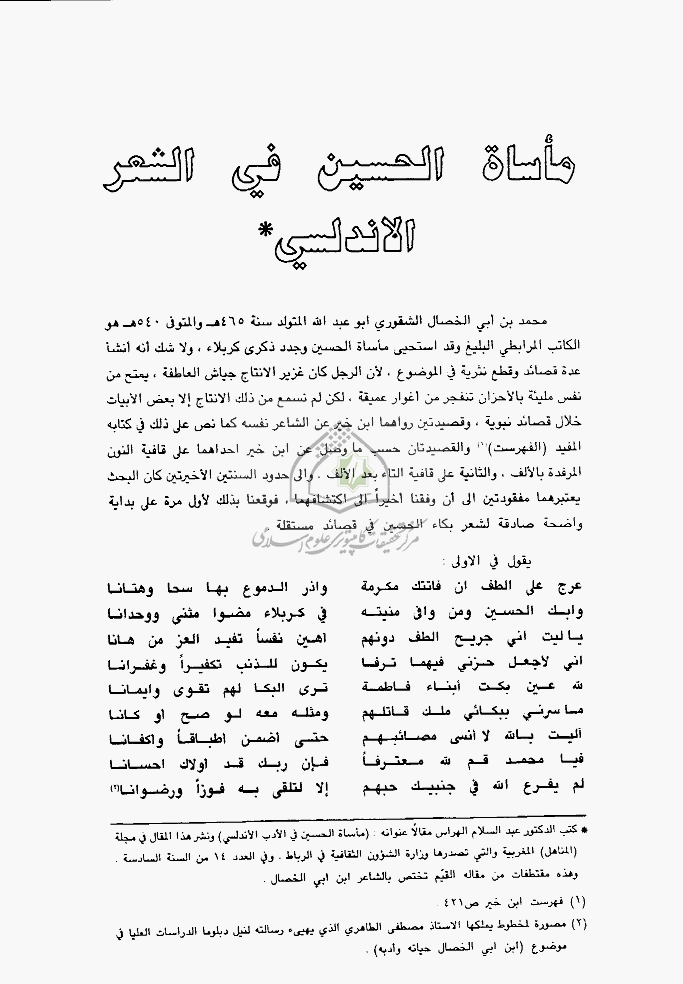 مأساة الحسين في الشعر
الاندلسي*
محمد بن أبي الخصال الشقوري ابو عبد الله المتولد سنة ٤٦٥هـ والمتوفى ٥٤٠هـ هو
الكاتب المرابطي البليغ وقد استحيى مأساة الحسين وجدد ذكرى كربلاء ، ولا شك أنه أنشأ
عدة قصائد وقطع نثرية في الموضوع ، لأن الرجل كان غزير الانتاج جياش العاطفة ، يمتح من
نفس مليئة بالأحزان تنفجر من أغوار عميقة ، لكن لم نسمع من ذلك الانتاج إلا بعض الأبيات
خلال قصائد نبوية ، وقصيدتين رواهما ابن خير عن الشاعر نفسه كما نص على ذلك في كتابه
المفيد (الفهرست)(١) والقصيدتان حسب ما وصل عن ابن خير احداهما على قافية النون
المرفدة بالألف ، والثانية على قافية التاء بعد الألف . والى حدود السنتين الأخيرتين كان البحث
يعتبرهما مفقودتين الى أن وفقنا أخيراً الى اكتشافهما ، فوقعنا بذلك لأول مرة على بداية
واضحة صادقة لشعر بكاء الحسين في قصائد مستقلة
مركز تحقيقات كامپيوتری علوم اسلامی
يقول في الاولى :
عرج على الطف ان فاتتك مكرمة واذر الدموع بها سحا وهتانا
وابك الحسين ومن وافى منيته في كربلاء مضوا مثنى ووحدانا
يا ليت اني جريح الطف دونهم اهين نفساً تفيد العز من هانا
اني لاجعل حزني فيهما ترفا يكون للذنب تكفيراً وغفرانا
لله عين بكت أبناء فاطمة ترى البكا لهم تقوى وايمانا
ما سرني ببكائي ملك قاتلهم ومثله معه لو صح او كانا
آليت بالله لا أنسى مصائبهم حتى أضمن أطباقاً واكفانا
فيا محمد قم لله معترفاً فإن ربك قد أولاك احسانا
لم يفرغ الله في جنبيك حبهم إلا لتلقى به فوزاً ورضوانا(٢)
* كتب الدكتور عبد السلام الهراس مقالاً عنوانه : (مأساة الحسين في الأدب الأندلسي) ونشر هذا المقال في مجلة
(المناهل) المغربية والتي تصدرها وزارة الشؤون الثقافية في الرباط . وفي العدد ١٤ من السنة السادسة .
وهذه مقتطفات من مقاله القيّم تختص بالشاعر ابن ابي الخصال .
(١) فهرست ابن خير ص٤٢١ .
(٢) مصورة لمخطوط يملكها الاستاذ مصطفى الطاهري الذي يهيىء رسالته لنيل دبلوما الدراسات العليا في
موضوع (ابن ابي الخصال حياته وأدبه) .